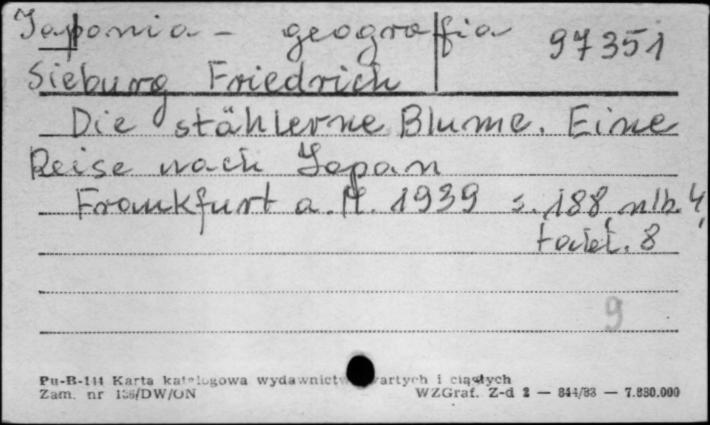 Japonia - geografia 97351
Sieburg Friedrich
Die stählerne Blume. Eine
Reise nach Japan
Frankfurt a. M. 1939 s. 188, nlb. 4,
8
9
Pu-B-144 Karta katalogowa wydawnictw zwartych i ciągłych
Zam. nr 136/DW/ON WZGraf. Z-d 2 — 844/83 — 7.880.000